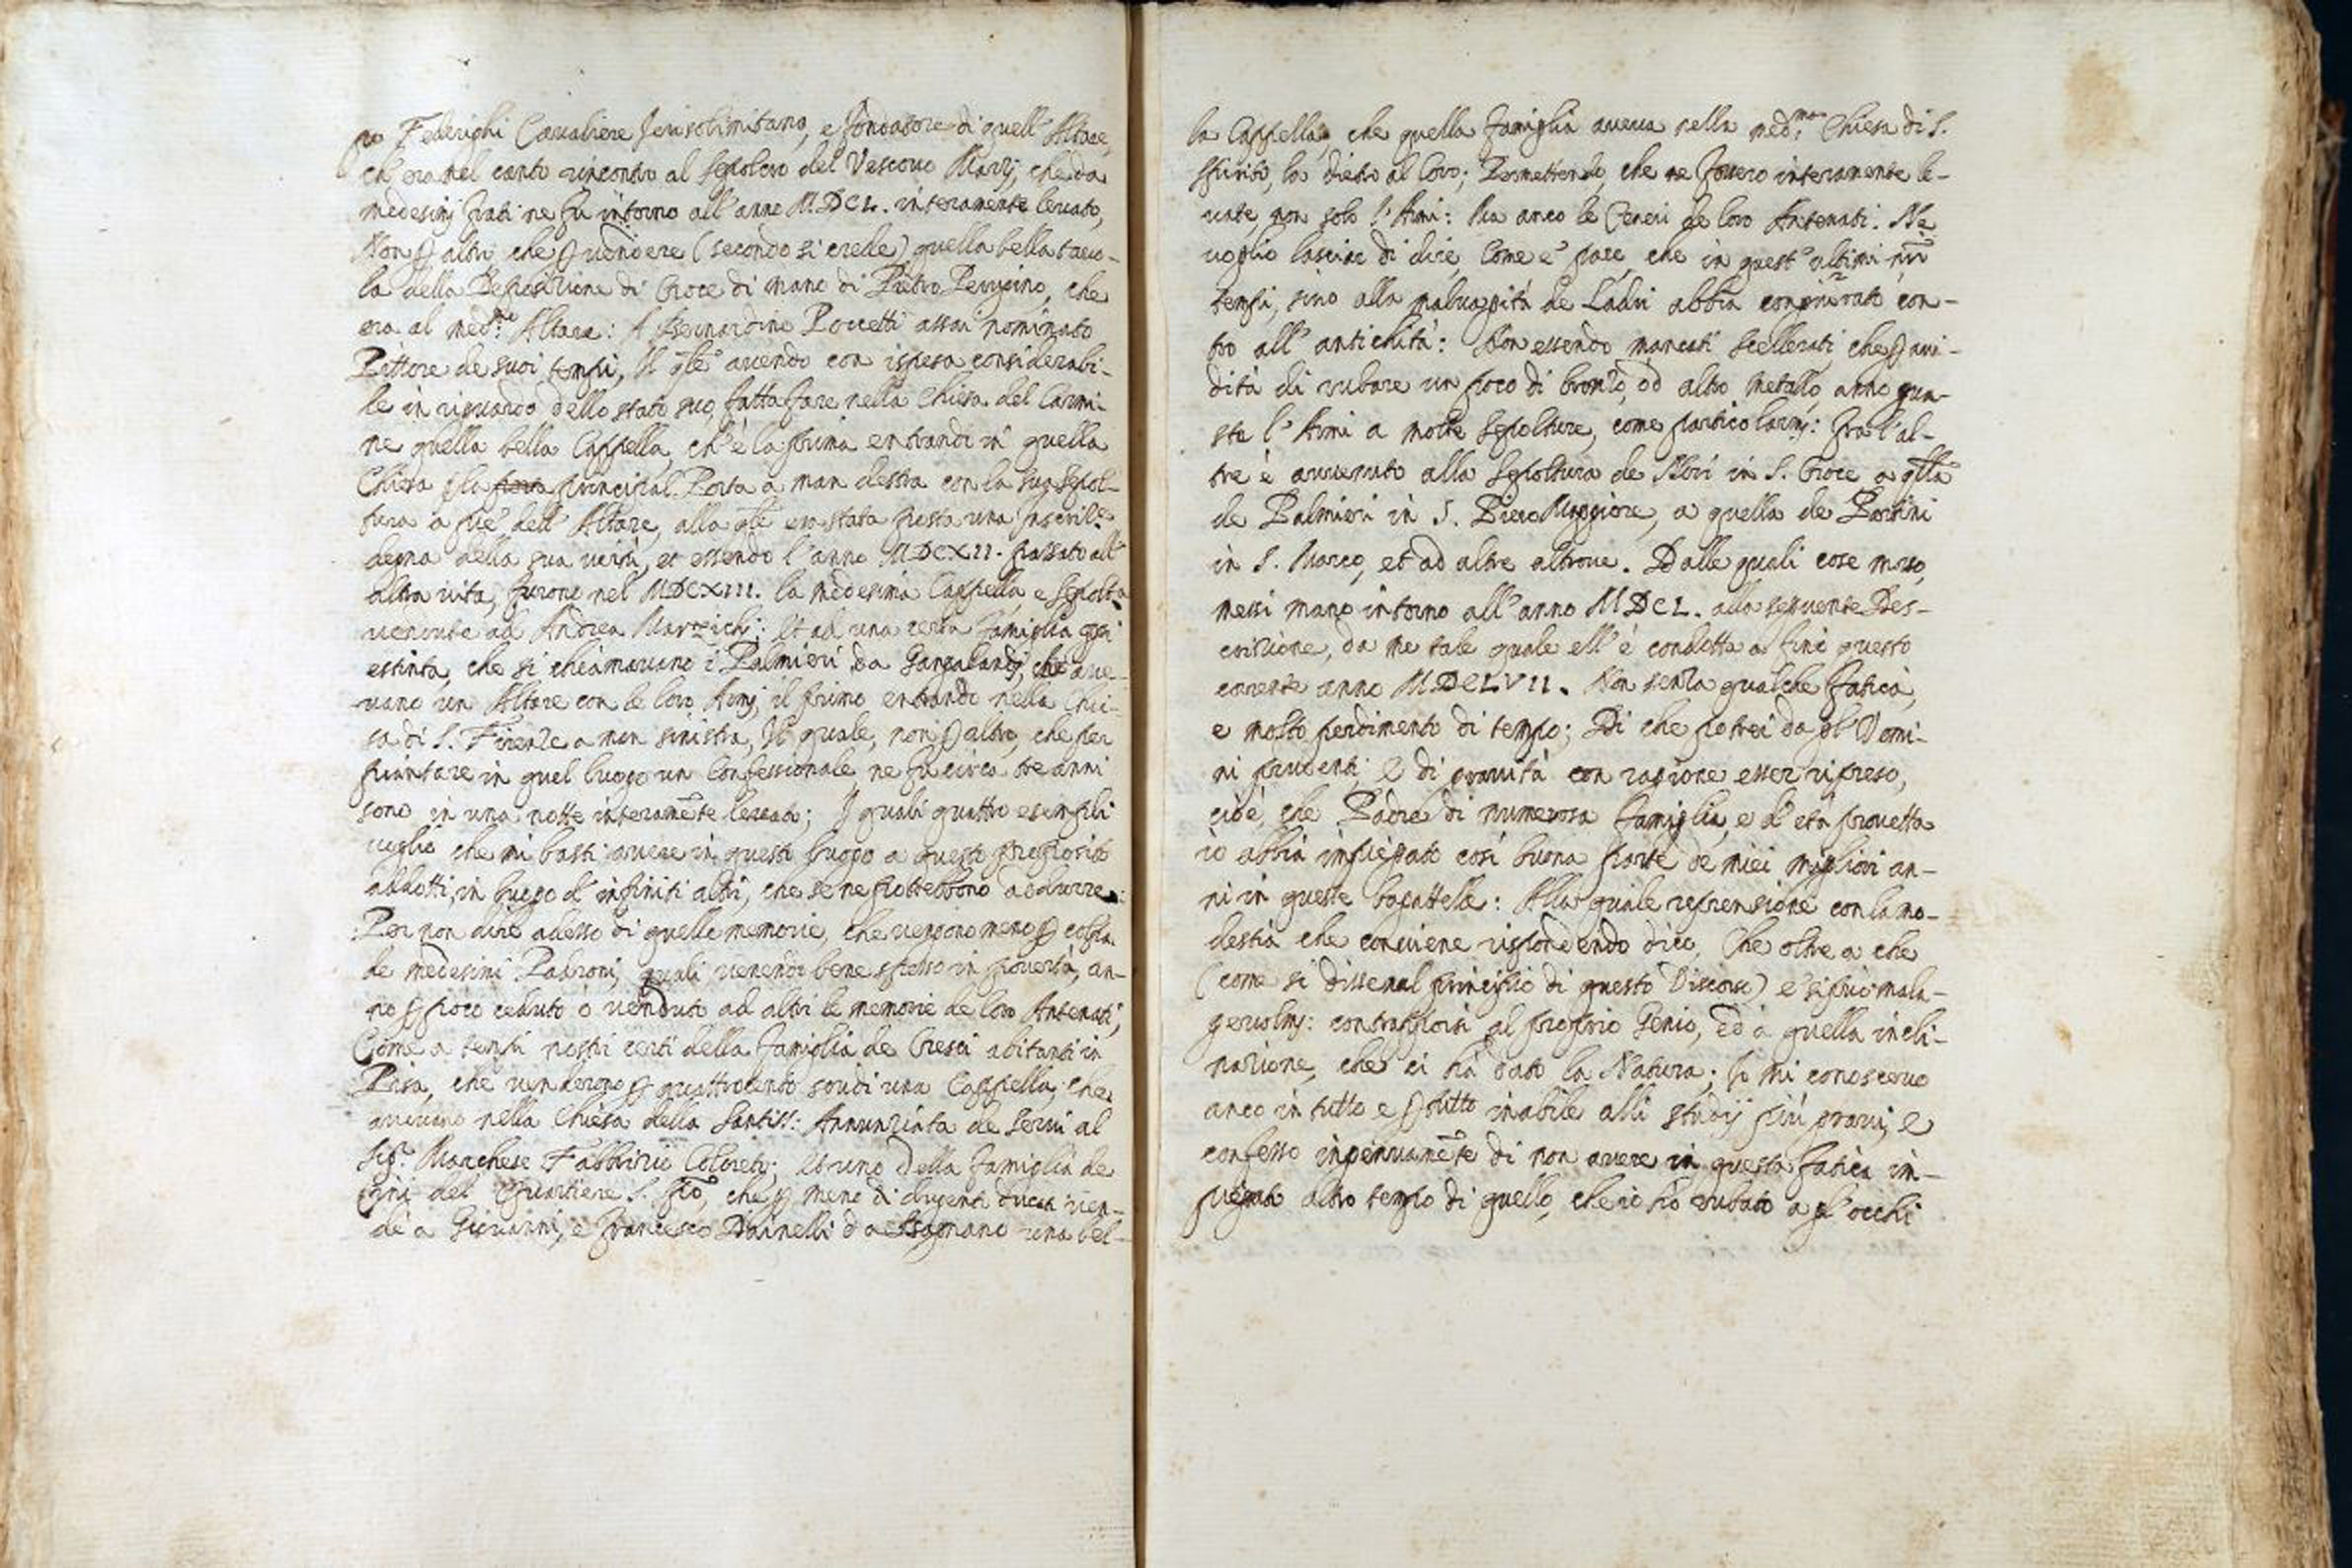 po Federighi Cavaliere Jerusolimitano, e fondatore di quell' Altare,
ch' era nel canto rincontro al Sepolcro del Vescovo Marzj, che da
medesimj frati ne fu intorno all' anno M.DCL. interamente levato,
Non p altro che p vendere (secondo si crede) quella bella tavo-
la della Deposizione di Croce di mano di Pietro Perugino, che
era al med.mo Altare: A Bernardino Poccetti assai nominato
Pittore de suoi tempi, Il qle avendo con ispesa considerabi-
le in riguardo dello stato suo, fatta fare nella Chiesa del Carmi-
ne quella bella Cappella, ch' è la prima entrando in quella
Chiesa p la principal Porta a man destra con la sua Sepol-
tura a piè dell' Altare, alla qle era stata posta una Inscriz.e
degna della sua virtù, et essendo l' anno MDCXII. passato all'
altra vita, furono nel MDCXIII. la medesima Cappella e Sepolta
vendute ad Andrea Marzichj: Et ad una certa famiglia oggi
estinta, che si chiamavano i Palmieri da Gangalandj, che ave-
vano un Altare con le loro Armj, il primo entrando nella Chie-
sa di S. Firenze a man sinistra, Il quale, non p altro, che per
piantare in quel luogo un Confessionale ne fu circa tre anni
sono in una notte interamēte levato; I quali quattro esempili
voglio che mi basti avere in questo luogo a questo proposito
addotti, in luogo d' infiniti altri, che se ne potrebbono addurre:
Per non dire adesso di quelle memorie, che vengono meno p colpa
de medesimi Padroni, quali venendo bene spesso in povertà, an-
no p poco ceduto o venduto ad altri le memorie de loro Antenati,
Come a tempi nostri certi della famiglia de Cresci abitanti in
Pisa, che venderono p quattrocento scudi una Cappella, che
avevano nella Chiesa della Santiss: Annunziata de Servi al
Sig.r Marchese Fabbrizio Coloretj; Et uno della famiglia de
del Quartiere S. che p meno di dugenti ducati ven-
dè a Giovanni, e Francesco Dainelli da Bagnano una bel-
la Cappella, che quella famiglia aveva nella med.ma Chiesa di S.
Spirito, la dietro al Coro; Permettendo, che ne fossero interamente le-
vate, non solo l' Armi: Ma anco le Ceneri de loro Antenati. Ne
voglio lasciar di dire, Come e' pare, che in quest' ultimi nri
tempi, sino alla malvagità de Ladri abbia congiurato con-
tro all' antichità: Non essendo mancati scellerati che p avi-
dità di rubare un poco di bronzo, od altro metallo, anno gua-
ste l' Armi a molte Sepolture, come particolarmj: fra l' al-
tre è avvenuto alla Sepoltura de Nori in S. Croce a qlla
de Palmieri in S. Piero Maggiore, a quella de Portini
in S. Marco, et ad altre altrove. Dalle quali cose mosso,
messi mano intorno all' anno MDCL. alla seguente Des-
crizione, da me tale quale ell' è condotta a fine questo
corrente anno MDCLVII. Non senza qualche fatica,
e molto perdimento di tempo; Di che potrei da gl' Uomi-
ni prudenti e di gravità con ragione esser ripreso,
cioè, che Padre di numerosa famiglia, e d' età provetta
io abbia impiegato così buona parte de miei migliori an-
ni in queste bagattelle: Alla quale reprensione con la mo-
destia che conviene rispondendo dico, Che oltre a che
(come si disse nel principio di questo Discorso) e' si può mala-
gevolmj: contrapporsi al proprio Genio, ed a quella incli-
nazione, che ci ha dato la Natura; Io mi conoscevo
anco in tutto e p tutto inabile alli studij più gravi, e
confesso ingenuamēte di non avere in questa fatica im-
piegato altro tempo di quello, che io ho rubato a gl' occhi